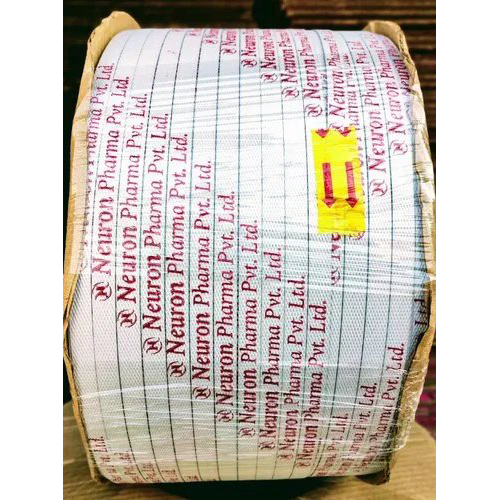 Pharma Pvt. Ltd.
Neuron Pharma Pvt. Ltd.
Neuron Pharma Pvt. Ltd.
Neuron Pharma Pvt. Ltd.
Neuron Pharma Pvt. Ltd.
Neuron Pharma Pvt. Ltd.
Neuron Pharma Pvt. Ltd.
Neuron Pharma Pvt. Ltd.
Neuron Pharma Pvt. Ltd.
Neuron Pharma Pvt. Ltd.
Neuron Pharma Pvt. Ltd.
Neuron Pharma
Neuron Pharma
Neuron Pharma
Neuron Pharma
Ltd.
Ltd.